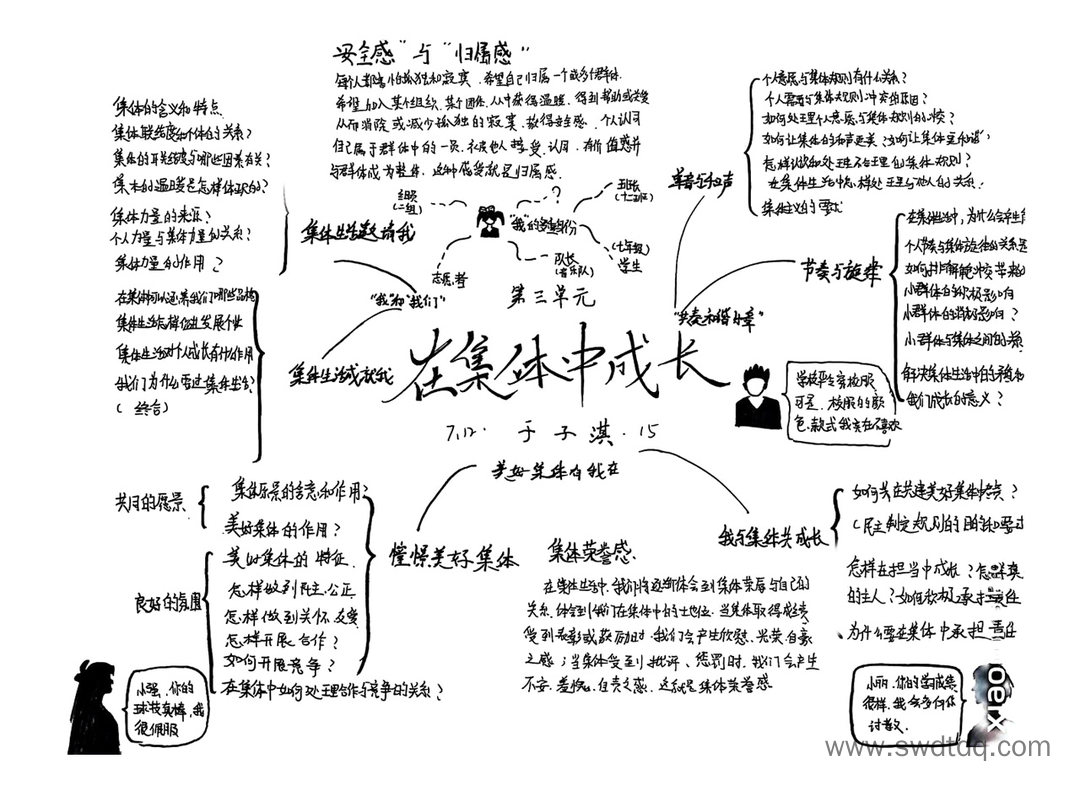 "安全感"与"归属感"
每个人都害怕孤独和寂寞，希望自己归属一个或多个群体
希望加入某个组织、某个团体，从中获得温暖，得到帮助或关爱
从而消除或减少孤独的寂寞，获得安全感，个人认同
自己属于群体中的一员，不被他人接受、认同，有价值感并
与群体成为整体，这种感受就是归属感
集体的含义和特点
集体联结度和个体的关系？
集体的联结度与哪些因素有关？
集体的温暖是怎样体现的？
集体力量的来源？
个人力量与集体力量的关系？
集体力量的作用？
集体生活邀请我
"我"和"我们"
组员
(二组)
志愿者
？
班长
(十二班)
"我"的多重身份
队长
(音乐队)
(七年级)
学生
在集体可以涵养我们哪些品格
集体生活怎样促进发展个性
集体生活对个人成长有什么作用
我们为什么要过集体生活？
(综合)
集体生活成就我
第三单元
在集体中成长
7.12. 于子淇.15
个人意愿与集体规则有什么关系？
个人需要与集体规则冲突的原因？
如何处理个人意愿与集体规则的冲突
如何让集体的和声更美？
怎样认识和处理不合理的集体规则？
在集体生活中怎样处理与他人的关系
集体主义的要求
单音与和声
"共奏和谐乐章"
节奏与旋律
在集体生活中，为什么会产生
个人节奏与集体旋律的关系
如何排解冲突带来的
小群体的积极影响
小群体的消极影响？
小群体与集体之间的关系
解决集体生活中的矛盾和
我们成长的意义？
学校要穿校服
可是，校服的颜
色、款式我实在不喜欢
美好集体有我在
憧憬美好集体
共同的愿景
集体愿景的含意和作用？
美好集体的作用？
良好的氛围
美好集体的特征
怎样做到民主、公正
怎样做到关怀、友爱
怎样开展合作？
如何开展竞争？
在集体中如何处理合作与竞争的关系？
小强，你的
球技真棒，我
很佩服
集体荣誉感
在集体生活中，我们将逐渐体会到集体荣辱与自己的
关系，体会到我们在集体中的地位。当集体取得成绩
受到表彰或鼓励时，我们会产生欣慰、光荣、自豪
之感；当集体受到批评、惩罚时，我们会产生
不安、羞愧、自责之感，这就是集体荣誉感
我与集体共成长
如何共建美好集体？
(民主制定规则的目的和要求
怎样在担当中成长？怎样真
的主人？如何欣然承担责任
为什么要在集体中承担责任
小丽，你的学习成绩
很棒，我会多向你
讨教
www.swdtdq.com